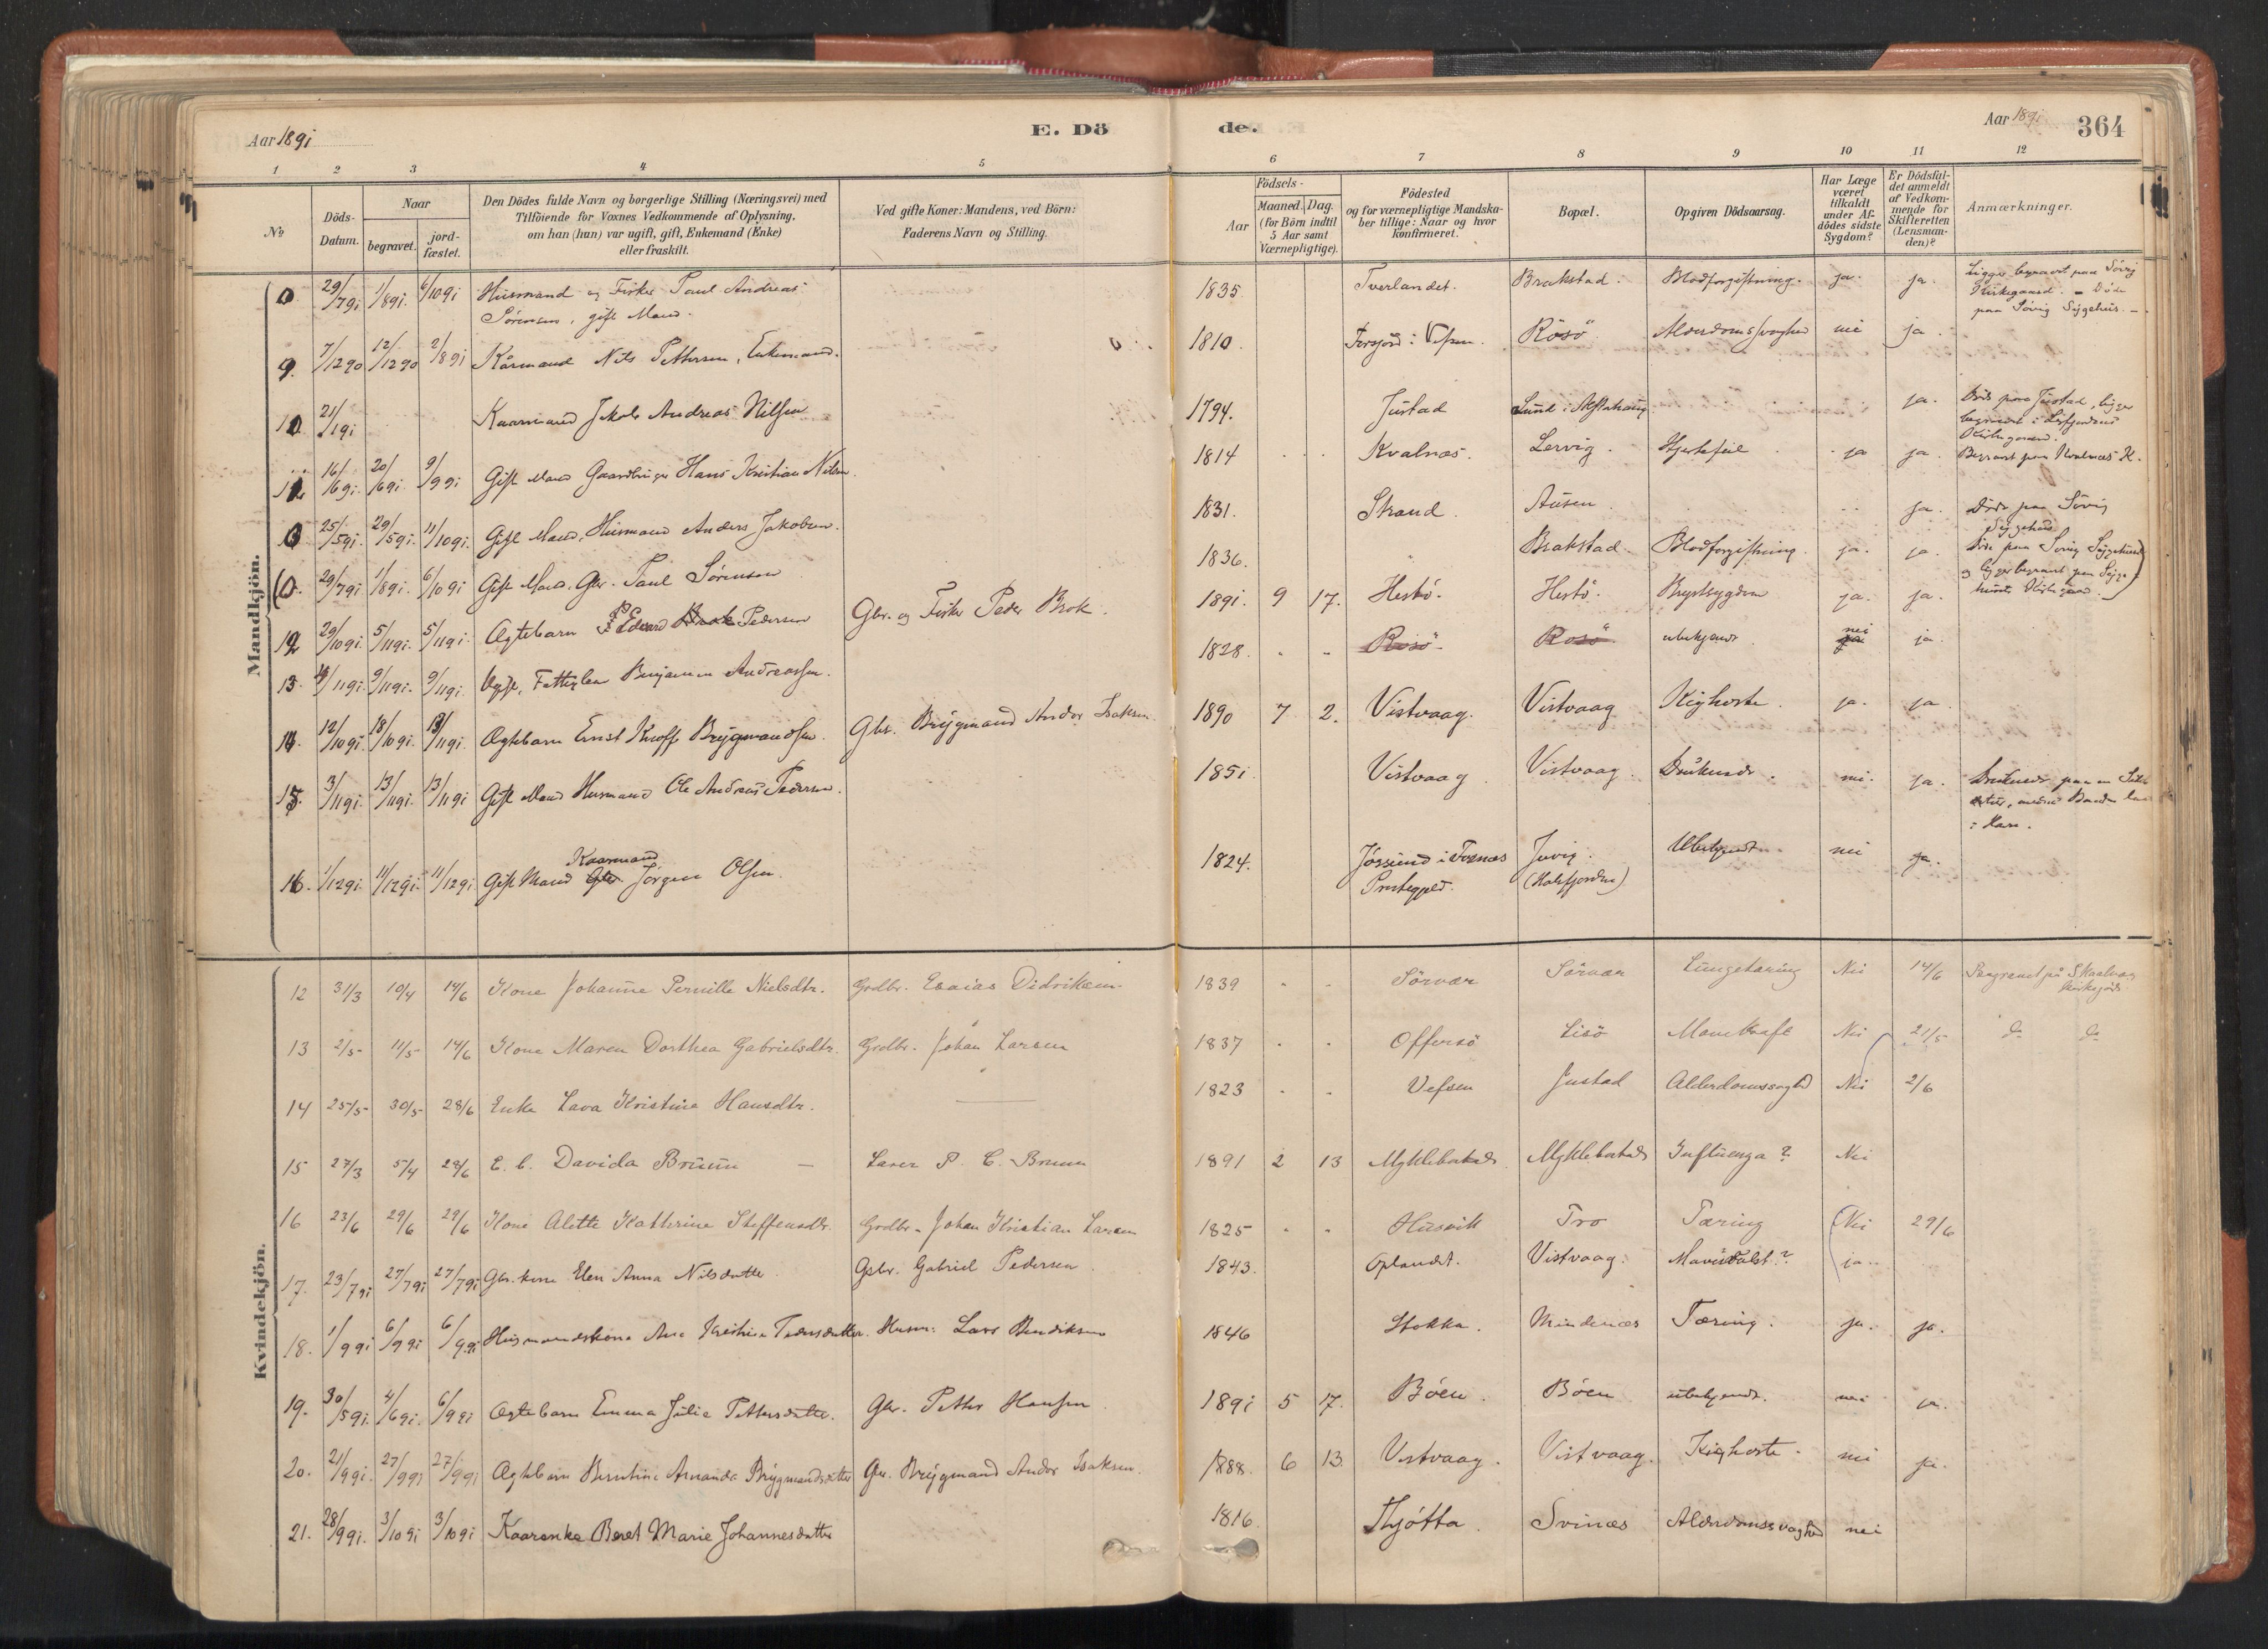 Aar 1891
E. Dö
de.
Aar 1891
364
1 2 3 4 5 6 7 8 9 10 11 12
No
Döds-
Datum.
Naar
begravet.
jord-
fæstet.
Den Dödes fulde Navn og borgerlige Stilling (Næringsvei) med
Tilföiende for Voxnes Vedkommende af Oplysning,
om han (hun) var ugift, gift, Enkemand (Enke)
eller fraskilt.
Ved gifte Koner: Mandens, ved Börn:
Faderens Navn og Stilling.
Födsels-
Aar
Maaned. Dag.
(for Börn indtil
5 Aar samt
Værnepligtige).
Födested
og for værnepligtige Mandska-
ber tillige: Naar og hvor
konfirmeret.
Bopæl.
Opgiven Dödsaarsag.
Har Læge
været
tilkaldt
under Af-
dödes sidste
Sygdom?
Er Dödsfal-
det anmeldt
af Vedkom-
mende for
Skifteretten
(Lensman-
den)?
Anmærkninger.
Mandkjön.
0 29/791 1/891 6/1091 Husmand og Fisker Paul Andreas
Sörensen, gift Mand. 1835. Tverlandet. Brakstad. Blodforgiftning. ja. ja. Ligger begravet paa Sövig
Kirkegaard. - Döde
paa Sövig Sygehus. -
9. 7/1290 12/1290 2/891 Kårmand Nils Pettersen, Enkemand. 1810. Forsjord i Vefsen. Rösö Alderdomssvaghed nei ja.
10 21/191 Kaarmand Jakob Andreas Nilsen 1794. Justad Lund i Alstahaug ja. Död paa Justad, ligger
begravet i Leirfjordens
Kirkegaard.
11 16/691 20/691 9/991 Gift Mand Gaardbruger Hans Kristian Nilsen. 1814 Kvalnæs. Lervig. Hjertefeil ja ja. Begravet paa Kvalnæs K.
0 25/591 29/591 11/1091 Gift Mand, Husmand Anders Jakobsen. 1831. Strand. Ausen ja. Döde paa Sövig
Sygehus
(0. 29/791 1/891 6/1091 Gift Mand, Gbr. Paul Sörensen 1836. " Brakstad. Blodforgiftning. ja. ja. Döde paa Sövig Sygehus
og ligger begravet paa Syge-
husets Kirkegaard)
12 29/1091 5/1191 5/1191 Ægtebarn Edvard Brok Pedersen Gbr. og Fisker Peder Brok. 1891. 9 17. Hestö. Hestö. Brystsygdom ja. ja.
13. 4/1191 9/1191 9/1191 Ugift, Fattiglem Benjamin Andreassen. 1828. - - Rosö Rosö ubekjendt. nei ja ja
14. 12/1091 18/1091 13/1191 Ægtebarn Ernst Knoff Brygmandsen. Gbr. Brygmand Andor Isaksen 1890 7 2. Vistvaag. Vistvaag Kighoste. ja. ja.
15. 3/1191 13/1191 13/1191 Gift Mand Husmand Ole Andreas Pedersen. 1851. Vistvaag. Vistvaag. Druknede. nei. ja. Druknede paa en
i Havn.
16. 1/1291 11/1291 11/1291 Gift Mand Gbr. Kaarmand Jörgen Olsen. 1824. Jössund i Fosnæs
Prestegjeld. Juvig.
(Halsfjorden) Ubekjendt nei ja.
Kvindekjön.
12 31/3 10/4 14/6 Kone Johanne Pernille Nielsdtr. Grdbr. Esaias Didriksen. 1839 - - Sörvær Sörvær Lungetæring Nei 14/6 Begravet på
Kirkegård
13 2/5 11/5 14/6 Kone Maren Dorthea Gabrielsdtr. Grdbr. Johan Larsen 1837 - - Offersö Lisö Mavekræft Nei 21/5 do do
14 25/5 30/5 28/6 Enke Lava Kristine Hansdtr. 1823 - - Vefsen Justad Alderdomssvaghd Nei 2/6
15 27/3 5/4 28/6 E. b. Davida Bruun - Lærer P. C. Bruun 1891 2 13 Myklebostad Myklebostad Influenza? Nei
16 23/6 29/6 29/6 Kone Alette Kathrine Steffensdtr. Grdbr. Johan Kristian Larsen 1825 - - Husvik Tro Tæring Nei 29/6
17. 23/791 27/791 27/791 Gbr. kone Elen Anna Nilsdatter Gbr. Gabriel Pedersen. 1843. Oplandet. Vistvaag. ja.
18. 1/991 6/991 6/991 Husmandskone Ane Kristine Pedersdatter. Husm. Lars Hendiksen 1846 Stokka. Mindenæs Tæring. ja. ja.
19. 30/591 4/691 6/991 Ægtebarn Emma Julie Pettersdatter. Gbr. Petter Hansen 1891 5 17. Böen. Böen ubekjendt. nei ja.
20. 21/991 27/991 27/991 Ægtebarn Berntine Amanda Brygmandsdatter Gbr. Brygmand Andor Isaksen. 1888. 6 13. Vistvaag. Vistvaag. Kighoste. nei ja.
21. 28/991 3/1091 3/1091 Kaarenke Beret Marie Johannesdatter 1816 Thjötta. Svinæs Alderdomssvaghed nei